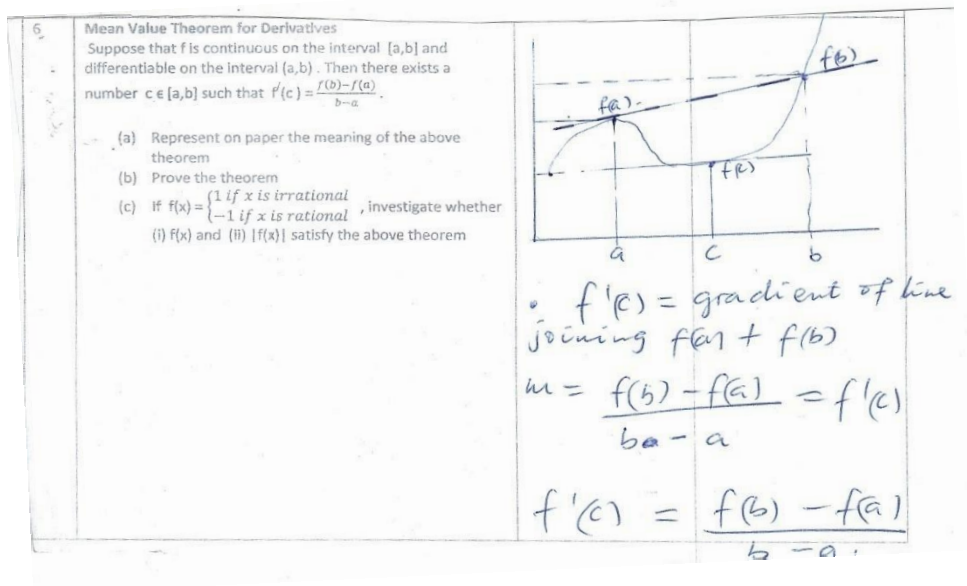 6
Mean Value Theorem for Derivatives
Suppose that f is continuous on the interval [a,b] and
differentiable on the interval (a,b) . Then there exists a
number c ϵ [a,b] such that f'(c) = f(b)−f(a) / b−a .
(a) Represent on paper the meaning of the above
theorem
(b) Prove the theorem
(c) If f(x) = {1 if x is irrational
{−1 if x is rational , investigate whether
(i) f(x) and (ii) |f(x)| satisfy the above theorem
f(b)
f(a)
f(c)
a c b
f'(c) = gradient of line
joining f(a) + f(b)
m = f(b) - f(a) / b - a = f'(c)
f'(c) = f(b) - f(a) / b - a .